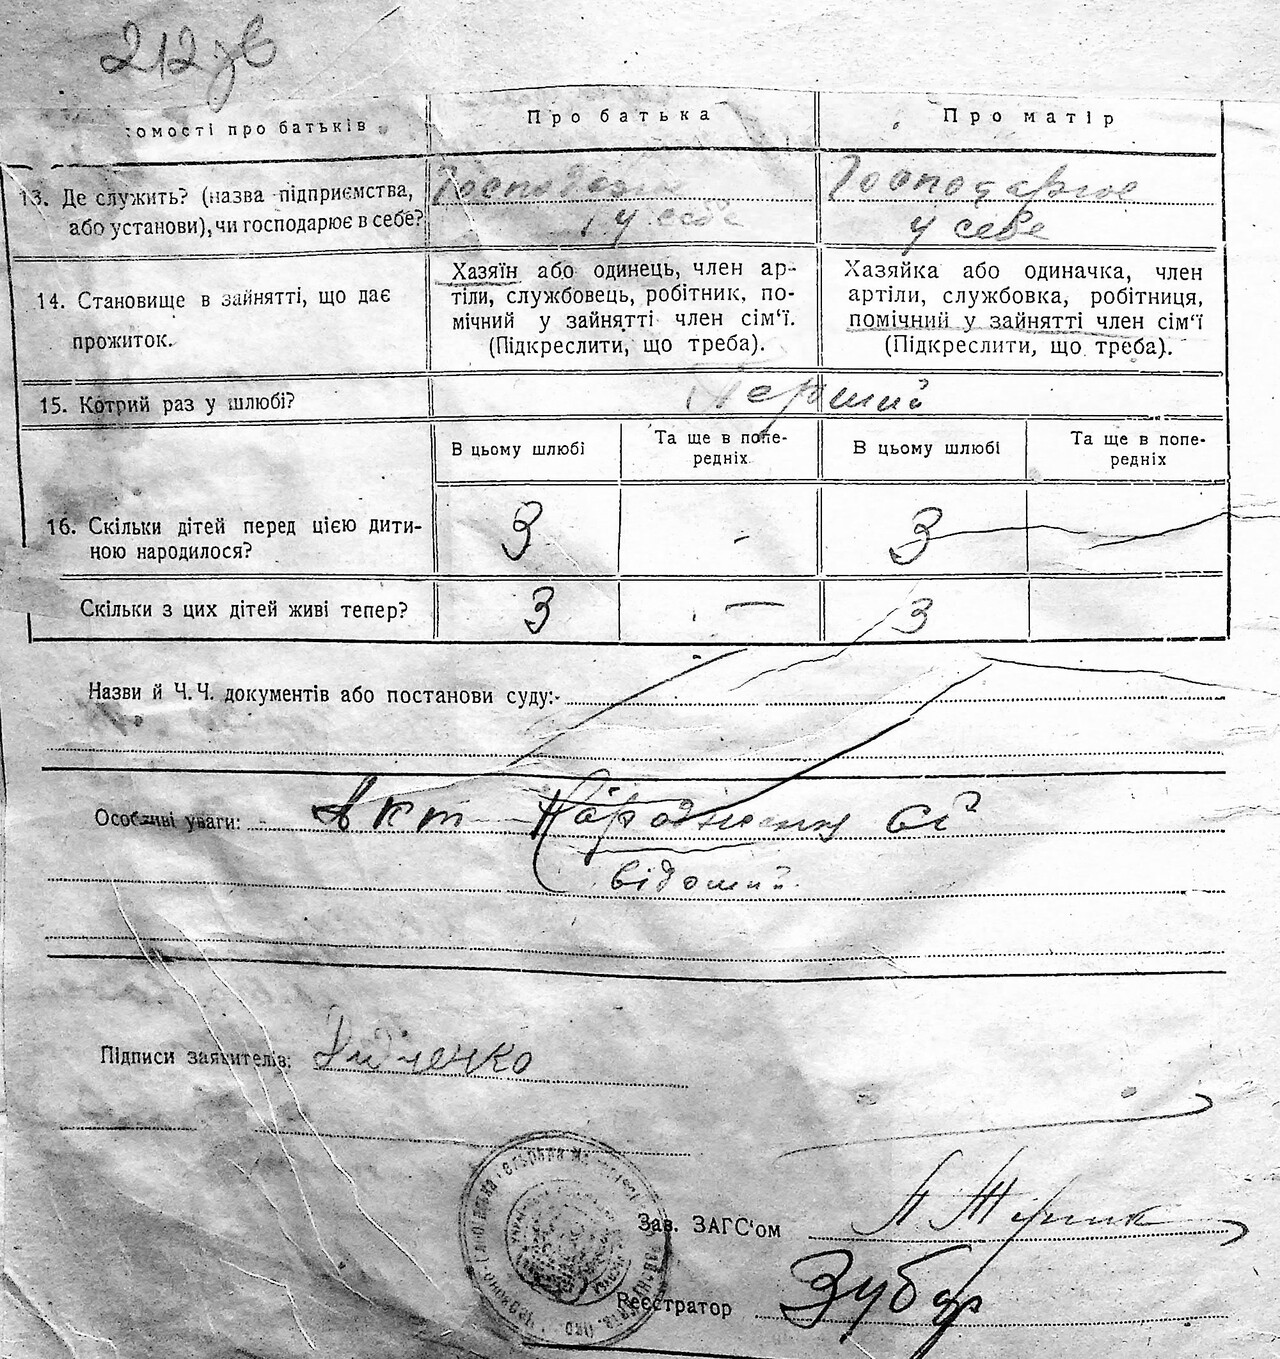 212 зв
омості про батьків
Про батька
Про матір
13. Де служить? (назва підприємства,
або установи), чи господарює в себе?
у себе
Господарює
у себе
14. Становище в зайнятті, що дає
прожиток.
Хазяїн або одинець, член ар-
тіли, службовець, робітник, по-
мічний у зайнятті член сім‘ї.
(Підкреслити, що треба).
Хазяйка або одиначка, член
артіли, службовка, робітниця,
помічний у зайнятті член сім‘ї
(Підкреслити, що треба).
15. Котрий раз у шлюбі?
Перший
В цьому шлюбі
Та ще в попе-
редніх
В цьому шлюбі
Та ще в попе-
редніх
16. Скільки дітей перед цією дити-
ною народилося?
3
-
3
Скільки з цих дітей живі тепер?
3
—
3
Назви й Ч. Ч. документів або постанови суду:-
Особливі уваги: Акт народження
відомий
Підписи заявителів: Дідченко
Зав. ЗАГС‘ом
Реєстратор Зубар